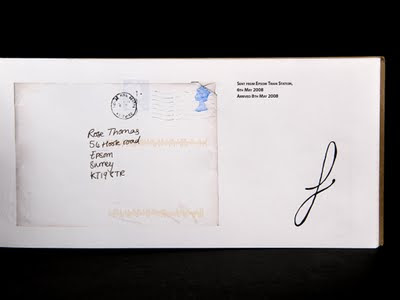 Rose Thomas
56 Hook road
Epsom
Surrey
KT19 8TR
Sent from Epsom Train Station,
6th May 2008
Arrived 8th May 2008
f